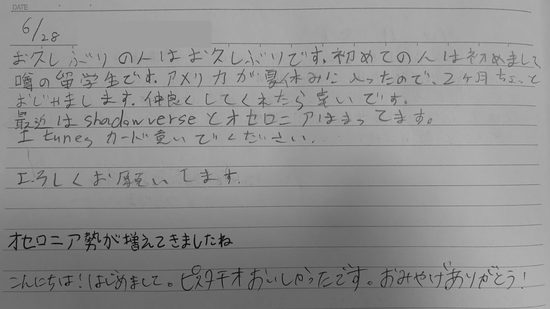 DATE
6/28
お久しぶりの人はお久しぶりです。初めての人は初めまして
噂の留学生です。アメリカが夏休みに入ったので、2ヶ月ちょっと
おじゃまします。仲良くしてくれたら幸いです。
最近はshadowverseとオセロニアはまってます。
iTunesカード買いでください。
よろしくお願いします。
オセロニア勢が増えてきましたね
こんにちは!はじめまして。ピスタチオおいしかったです。おみやげありがとう!